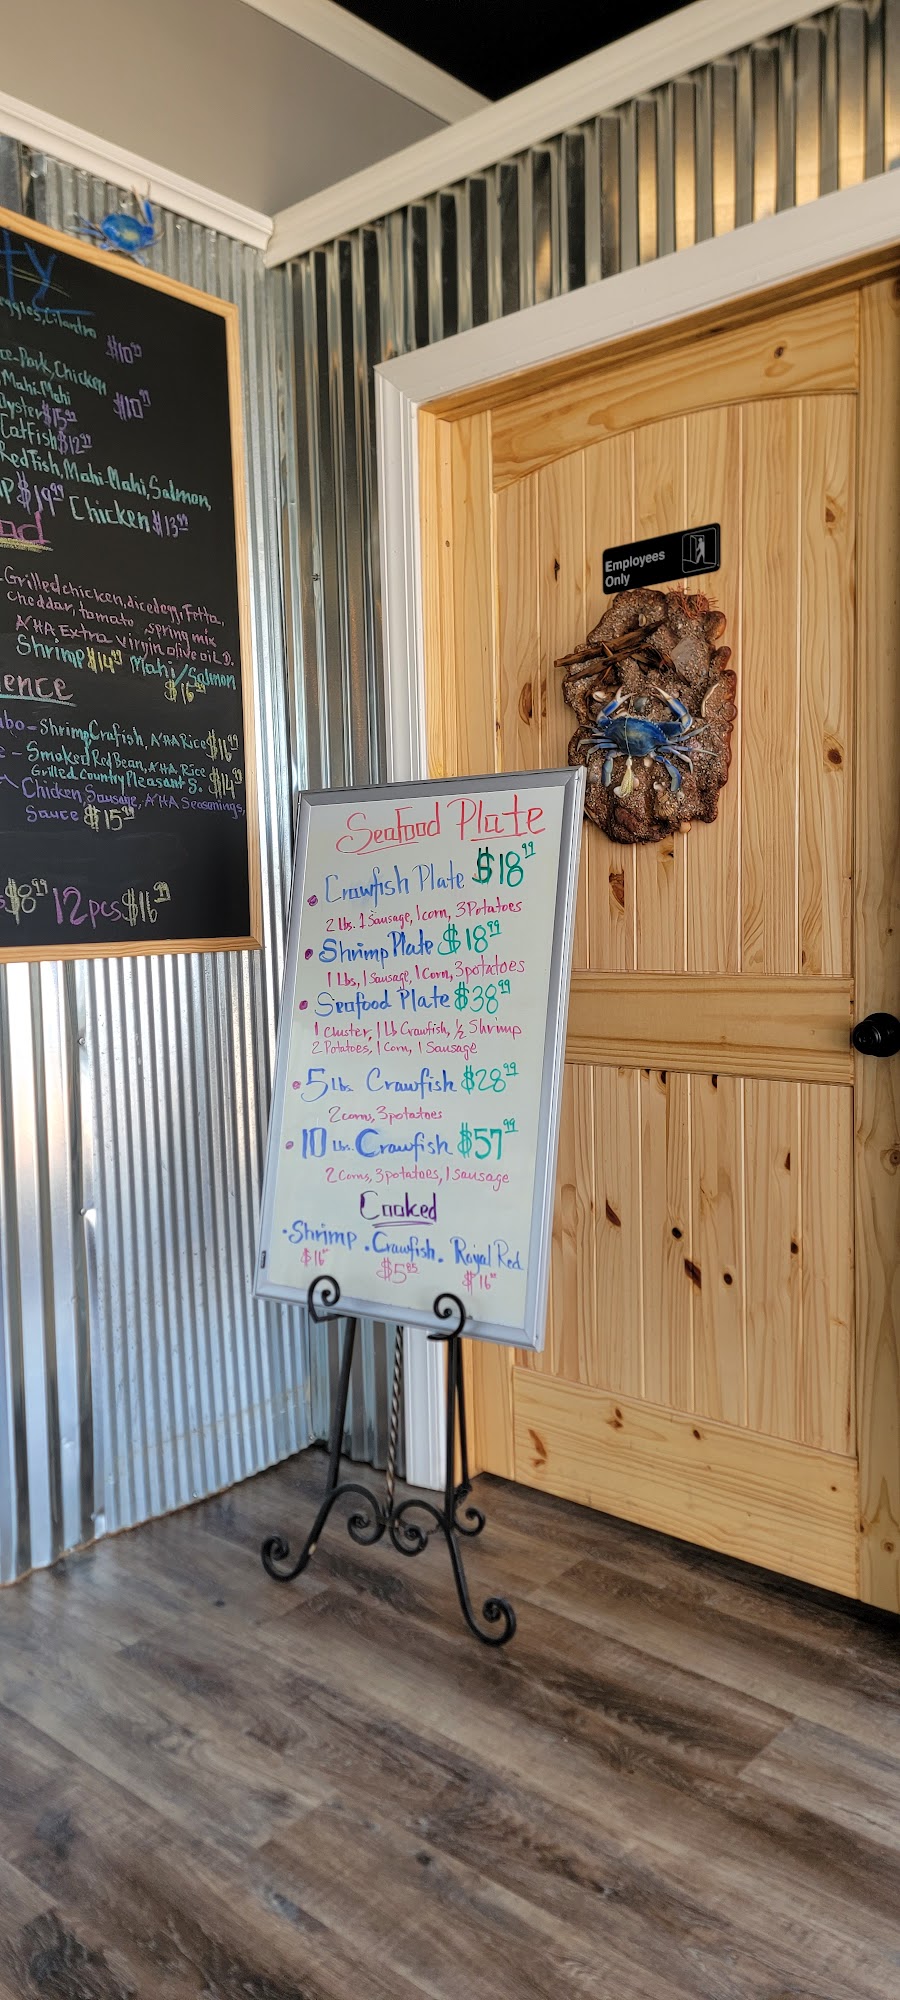 ty
eggies, Cilantro
$10⁹⁹
ce-Pork, Chicken
Mahi-Mahi $10⁹
Oyster $15⁹⁹
CatFish $12⁹⁹
RedFish, Mahi-Mahi, Salmon,
p $19⁹⁹ Chicken $13⁹⁹
ad
Grilled chicken, diced egg, Fetta,
Cheddar, tomato, spring mix
A'HA Extra virgin olive oil D.
Shrimp $14⁹⁹ Mahi/Salmon
$16⁹⁹
ence
bo - Shrimp Crafish, A'HA Rice $16⁹⁹
e - Smoked Red Bean, A'HA Rice
Grilled Country Pleasant S. $14⁹⁹
Chicken, Sausage, A'HA Seasonings,
Sauce $15⁹⁹
$8⁹⁹ 12pcs $16⁹⁹
Employees
Only
Seafood Plate
• Crawfish Plate $18⁹⁹
2 Lbs. 1 Sausage, 1 corn, 3 Potatoes
• Shrimp Plate $18⁹⁹
1 Lbs, 1 Sausage, 1 Corn, 3 potatoes
• Seafood Plate $38⁹⁹
1 cluster, 1 Lb Crawfish, ½ Shrimp
2 Potatoes, 1 Corn, 1 Sausage
• 5 Lbs. Crawfish $28⁹⁹
2 corns, 3 potatoes
• 10 Lbs. Crawfish $57⁹⁹
2 Corns, 3 potatoes, 1 Sausage
Cooked
• Shrimp • Crawfish • Royal Red
$16 $5 $16